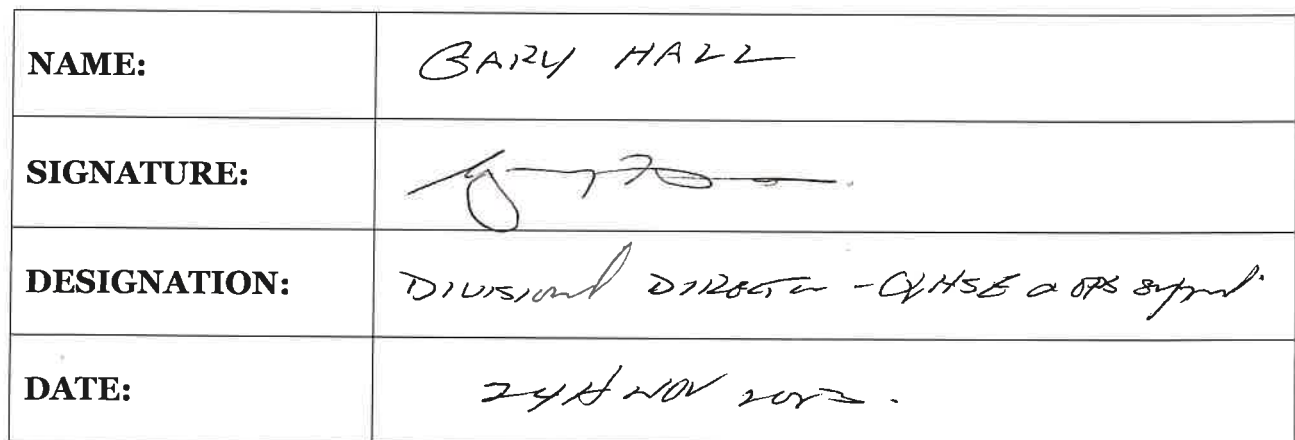 NAME: GARY HALL
SIGNATURE:
DESIGNATION: DIVISIONAL DIRECTOR - QHSE & OPS Support
DATE: 24th NOV